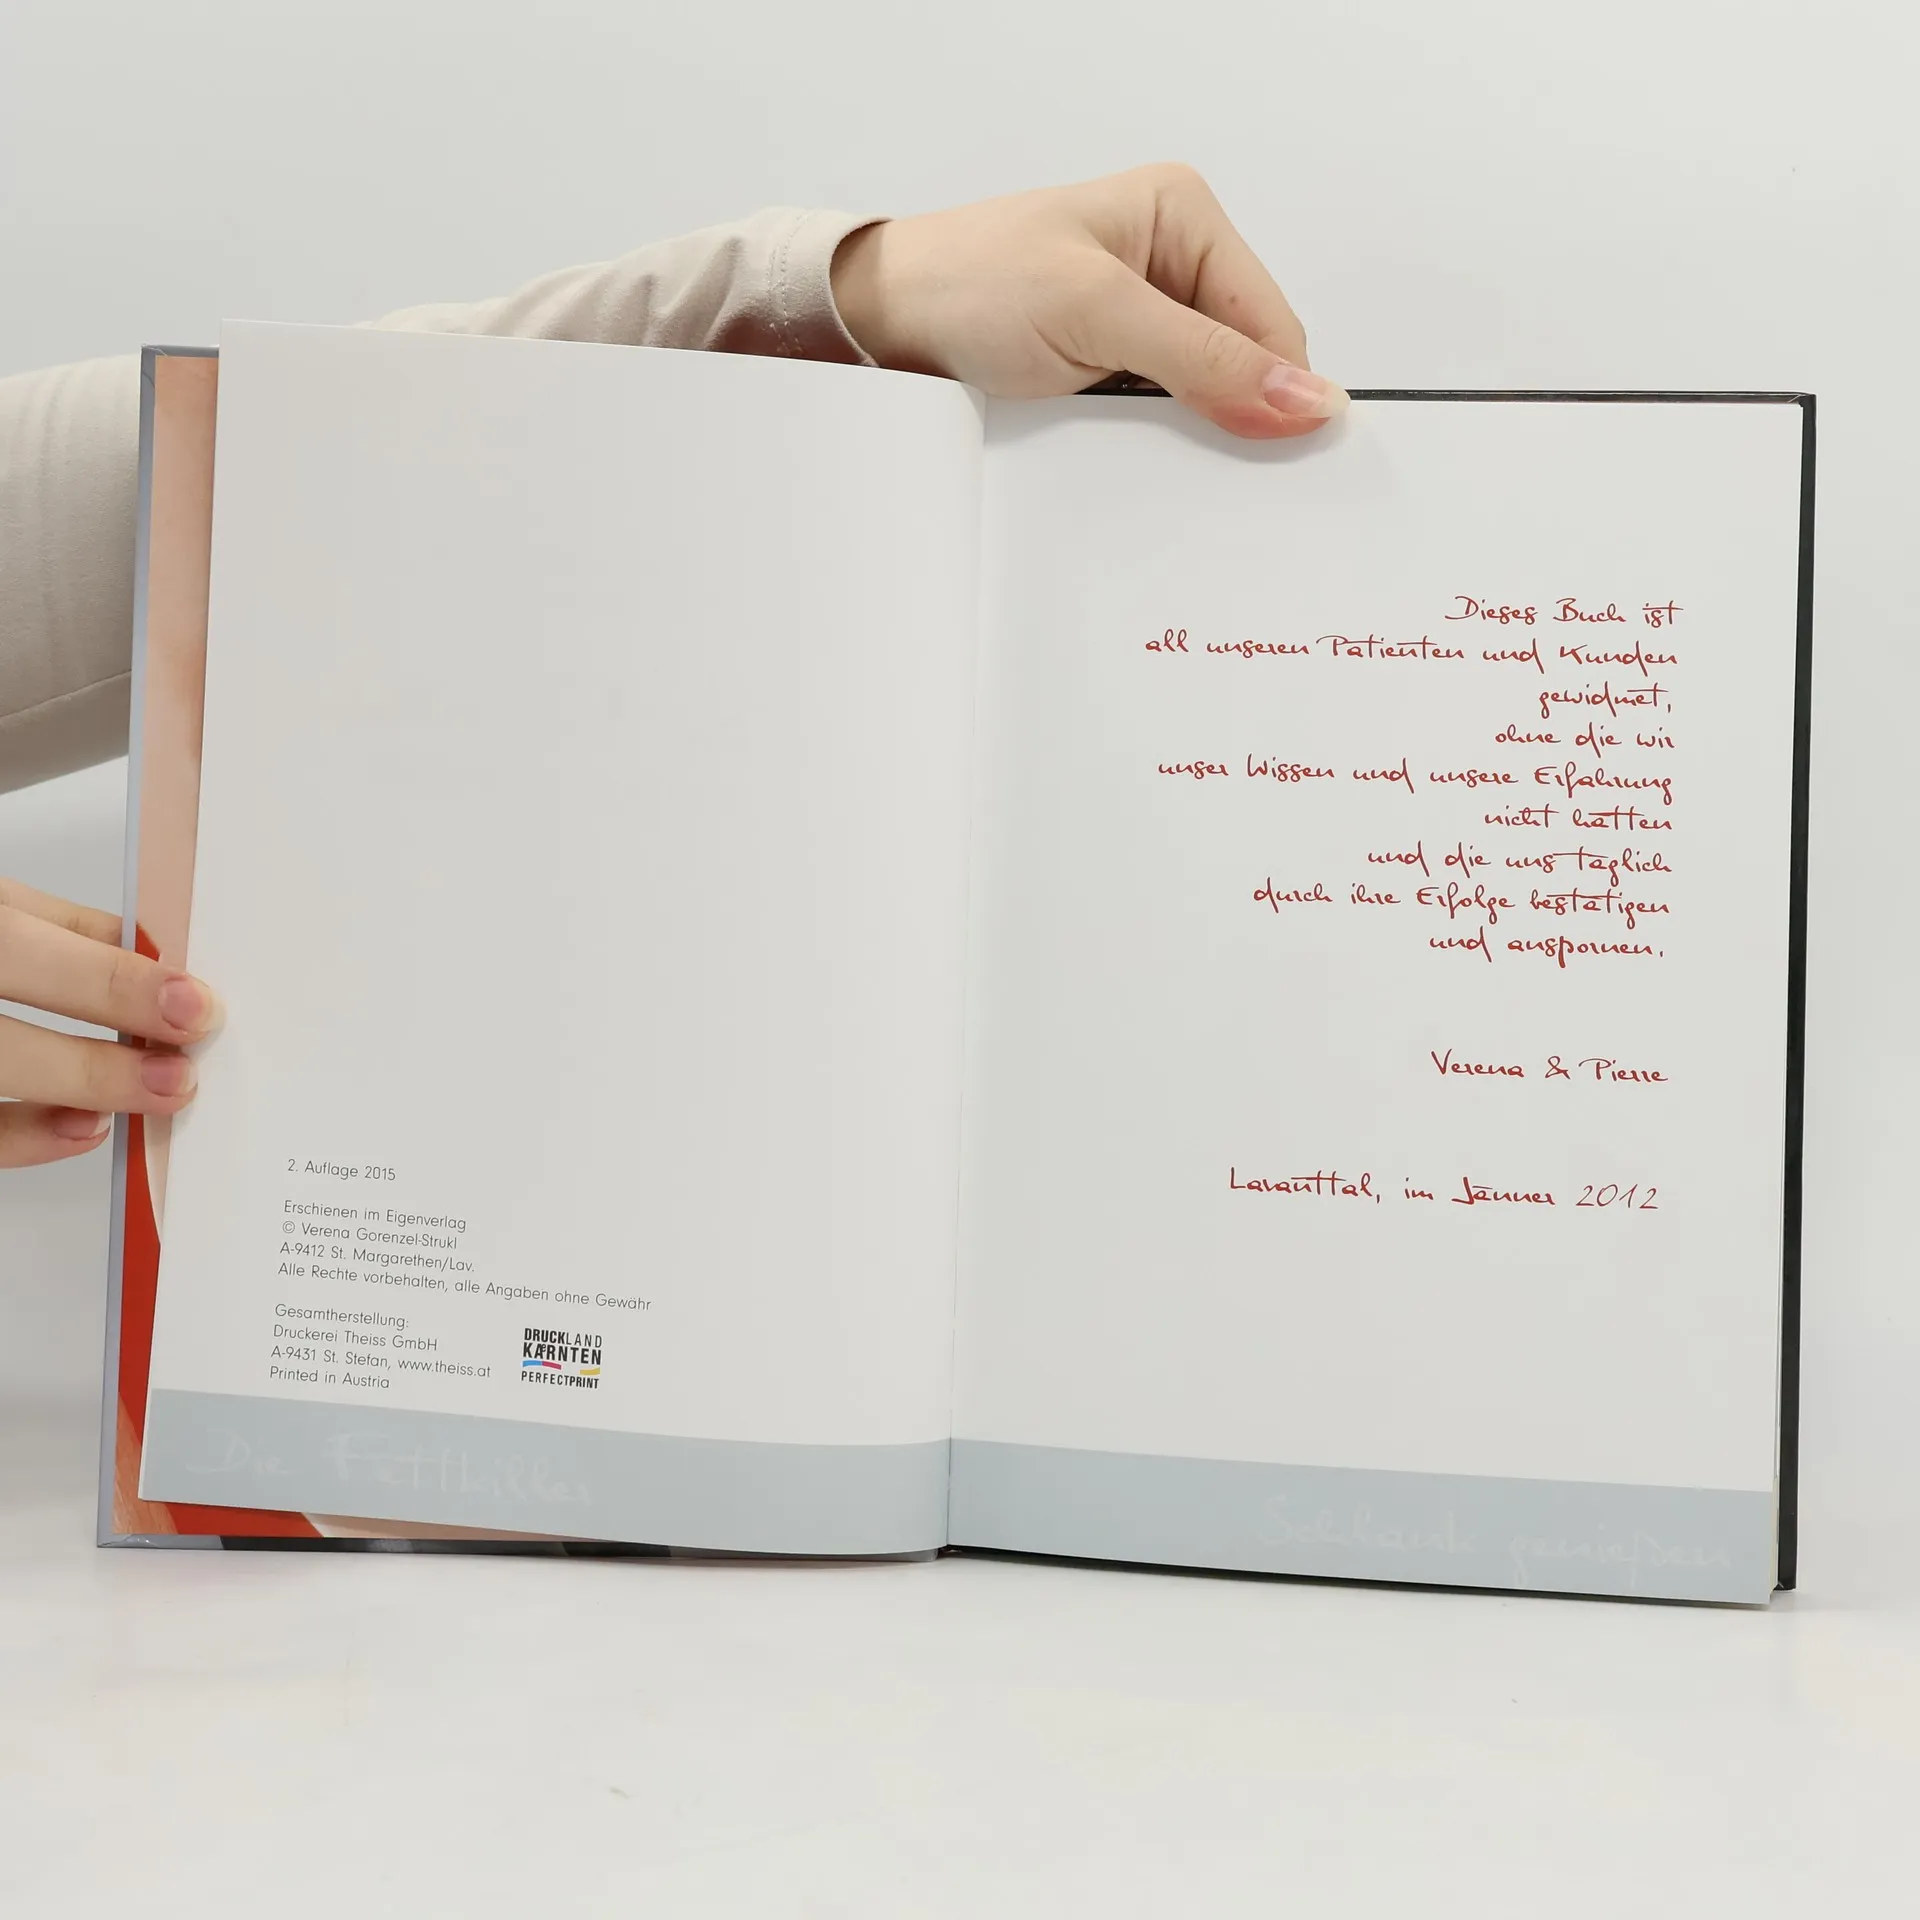 2. Auflage 2015
Erschienen im Eigenverlag
© Verena Gorenzel-Strukl
A-9412 St. Margarethen/Lav.
Alle Rechte vorbehalten, alle Angaben ohne Gewähr
Gesamtherstellung:
Druckerei Theiss GmbH
A-9431 St. Stefan, www.theiss.at
Printed in Austria
DRUCKLAND
KÄRNTEN
PERFECTPRINT
Die Fettkiller
Dieses Buch ist
all unseren Patienten und Kunden
gewidmet,
ohne die wir
unser Wissen und unsere Erfahrung
nicht hätten
und die uns täglich
durch ihre Erfolge bestätigen
und anspornen.
Verena & Pierre
Lavanttal, im Jänner 2012
Schlank genießen